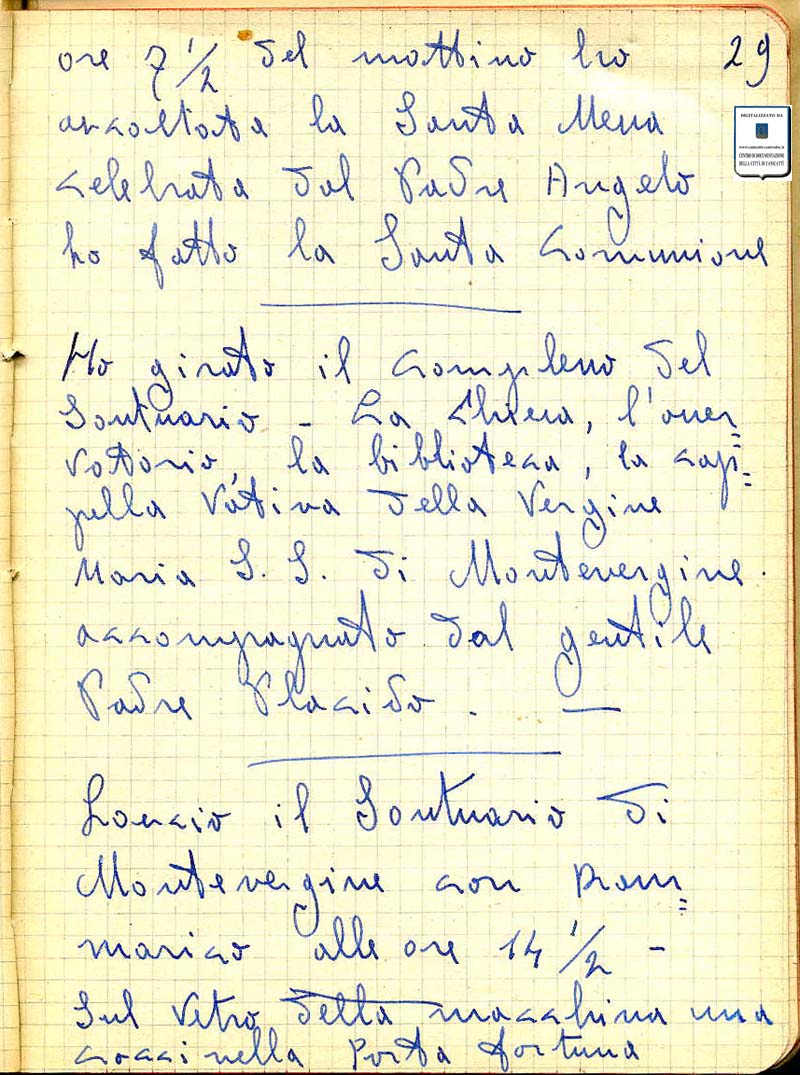 ore 7 1/2 del mattino ho 29
ascoltata la Santa Messa
celebrata dal Padre Angelo
ho fatto la Santa Comunione
Ho girato il complesso del
Santuario - La Chiesa, l'osser=
vatorio, la biblioteca, la cap=
pella Votiva della Vergine
Maria S.S. di Montevergine.
accompagnato dal gentile
Padre Placido. —
Lascio il Santuario di
Montevergine con
alle ore 14 1/2 -
Sul vetro della macchina una
coccinella Porta fortuna
DIGITALIZZATO DA
www.canicatti-centrodoc.it
CENTRO DI DOCUMENTAZIONE
DELLA CITTÀ DI CANICATTÌ